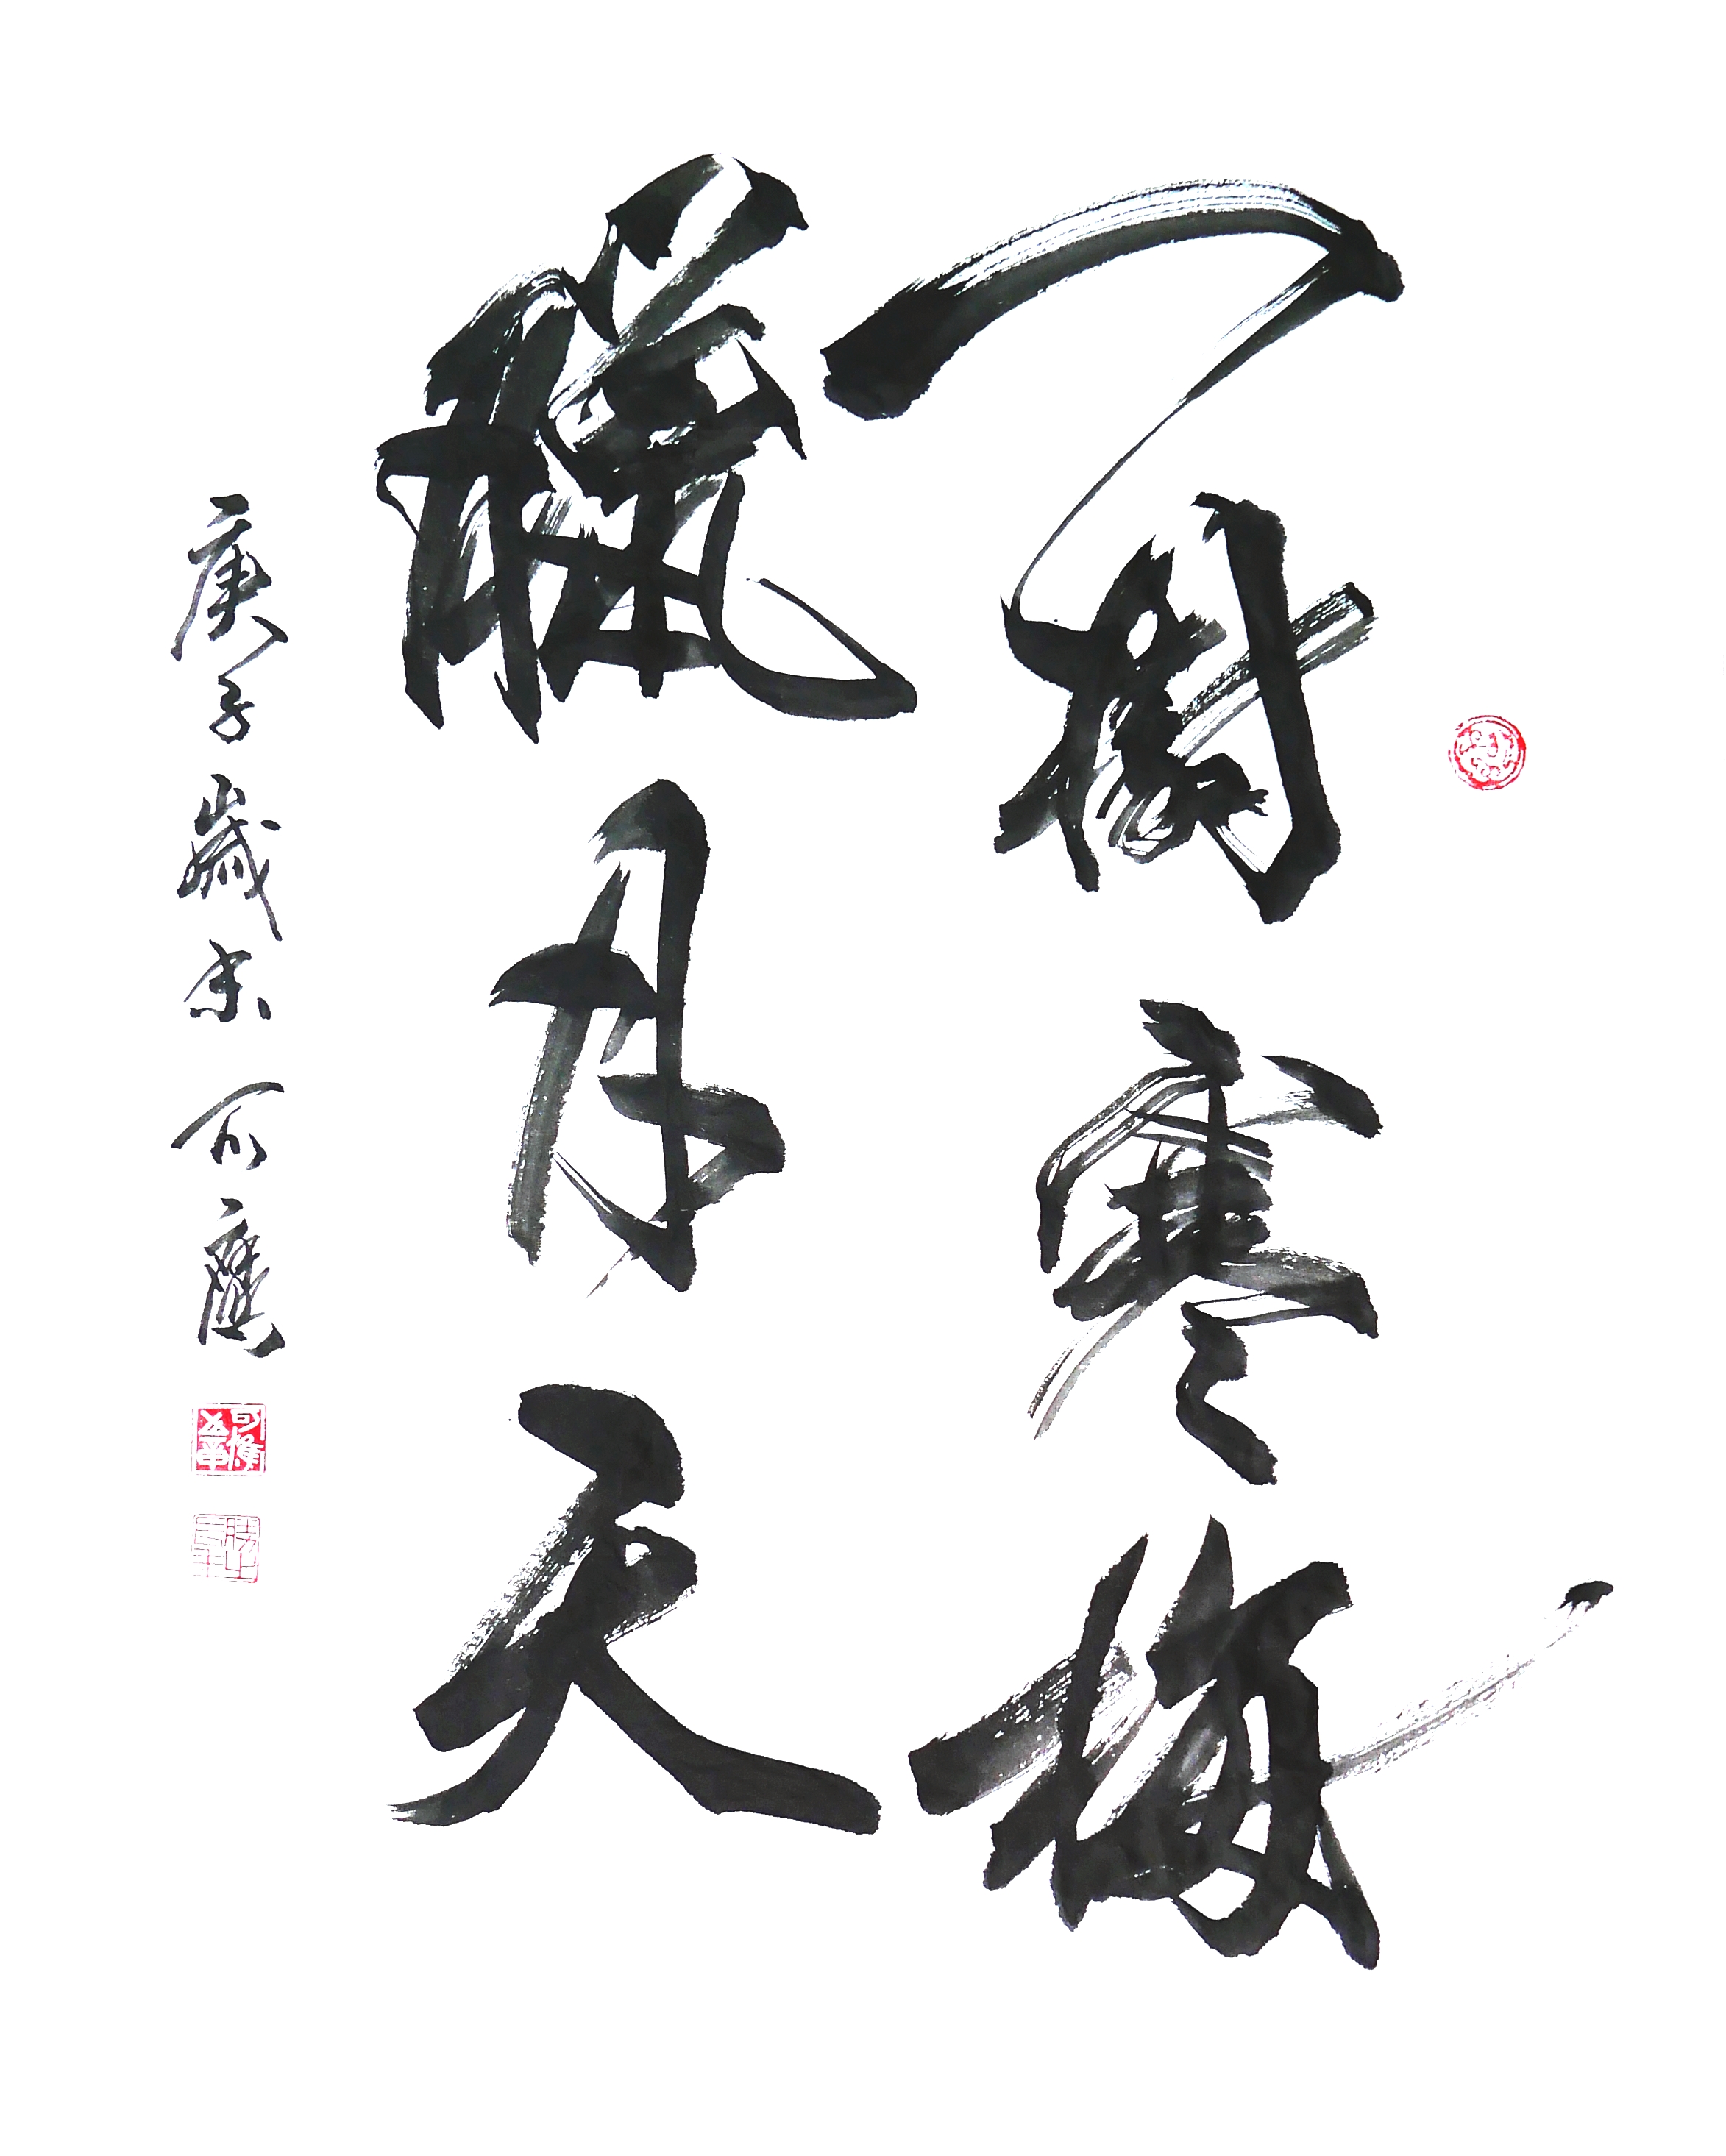 一樹寒梅
臘月天
庚子歲末可應